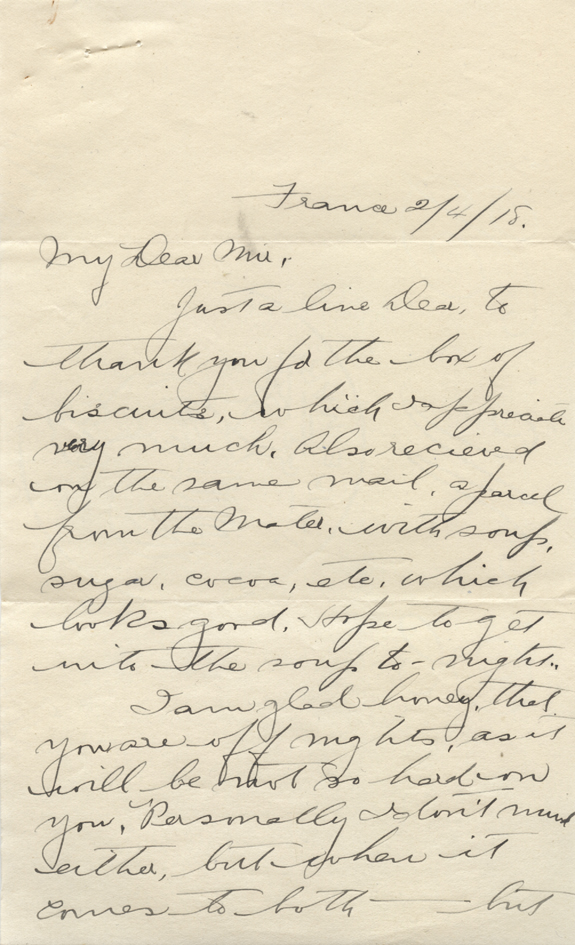 France 2/4/18.
My Dear Mir,
Just a line Dear, to
thank you for the box of
biscuits, which I appreciate
very much. Also recieved
on the same mail, a parcel
from the Mater. with soup,
sugar, cocoa, etc. which
looks good. Hope to get
into the soup to-night.
I am glad honey, that
you are off nights, as it
will be not so hard on
you. Personally I don't mind
either, but when it
comes to both — but